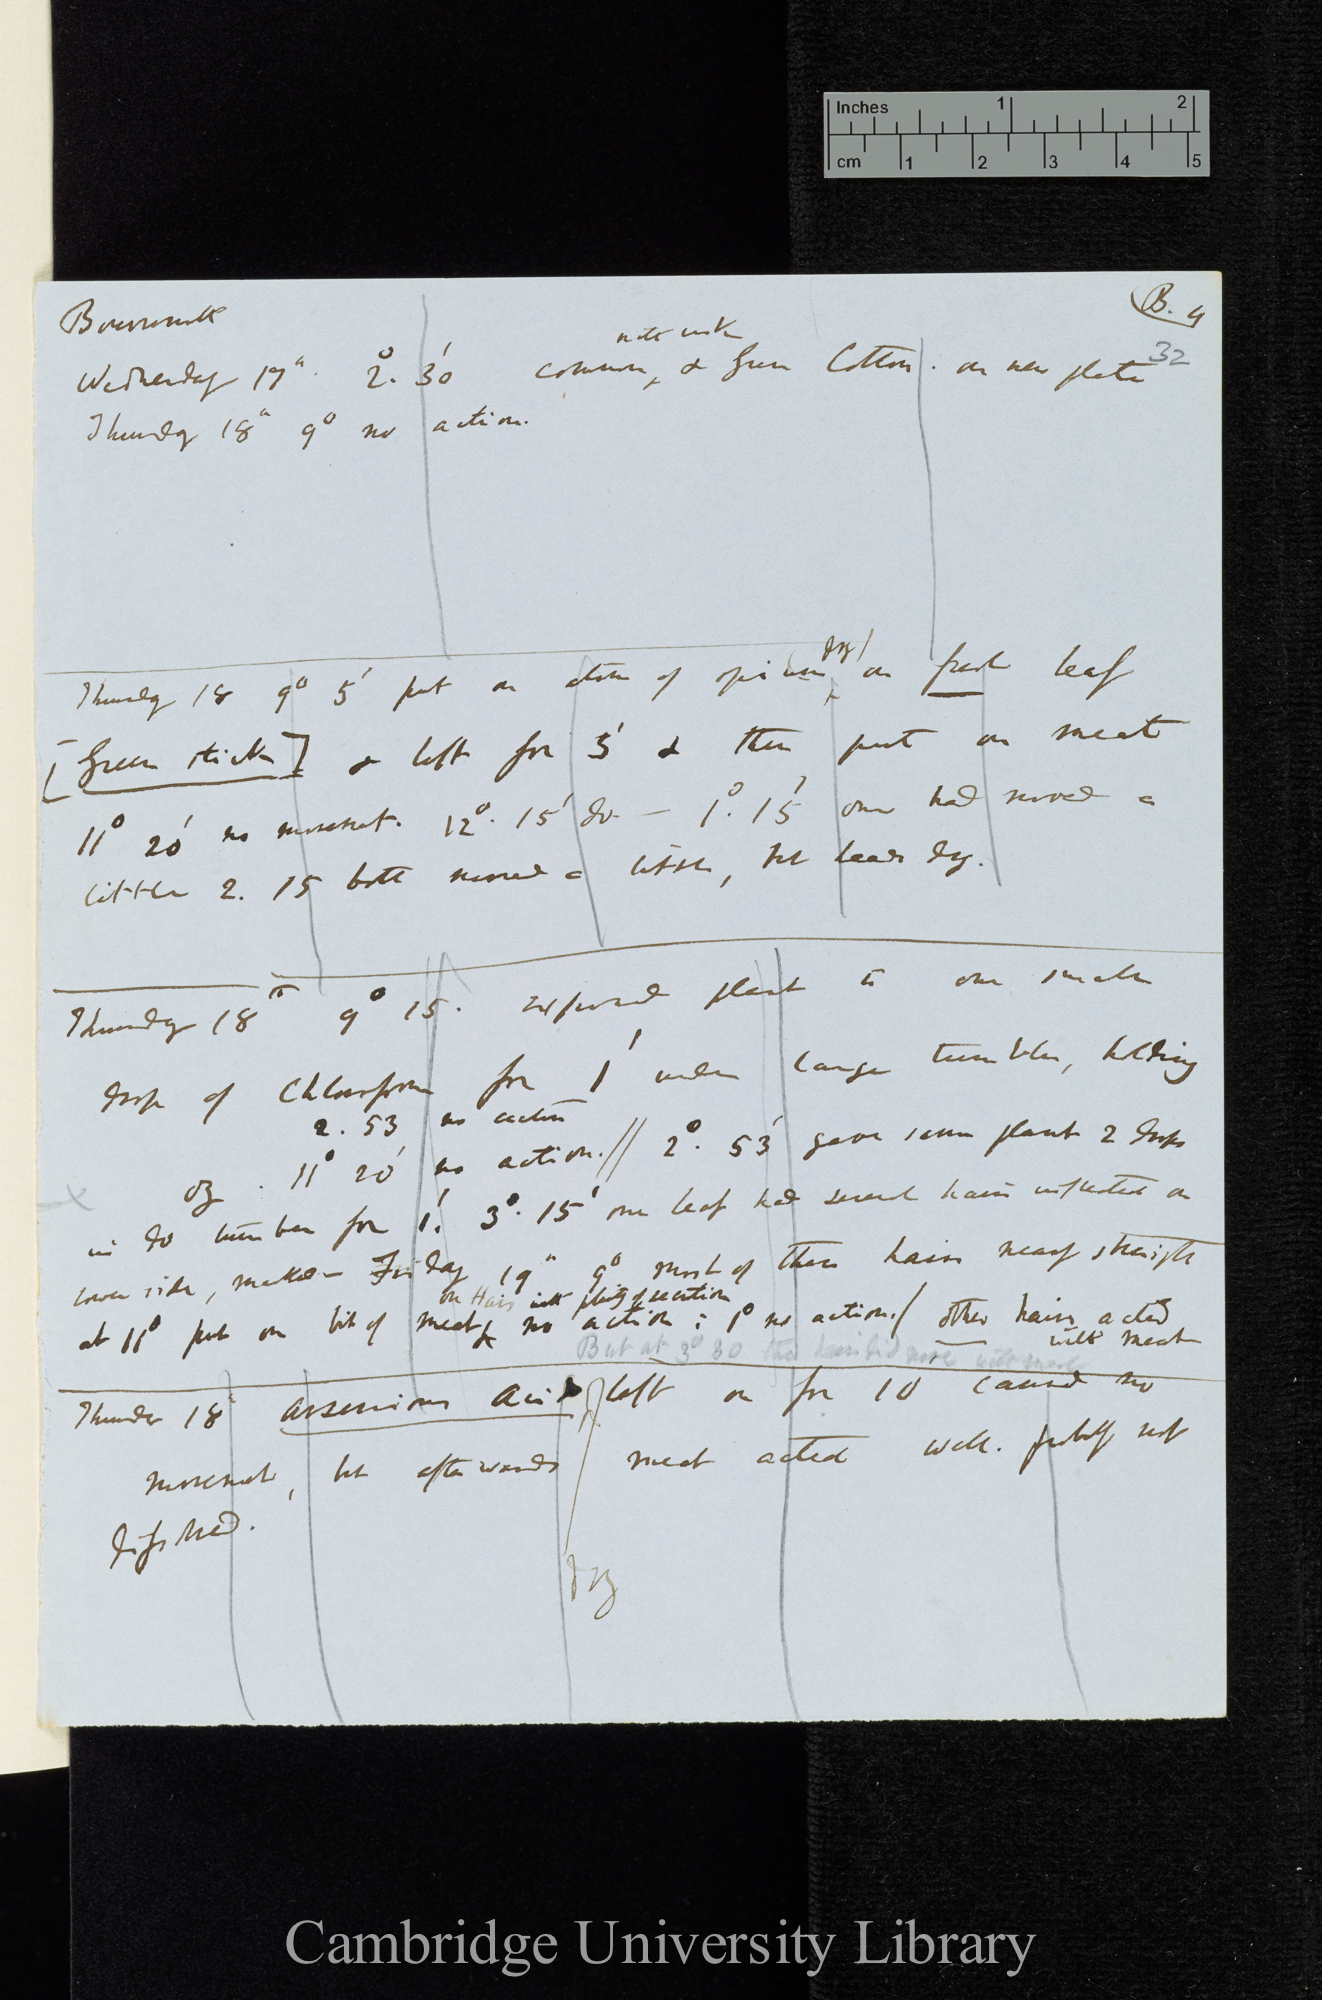 Inches 1 2
cm 1 2 3 4 5
B. 4
32
Bournemouth
Wednesday 17th 2° 30' common, & Green Cotton. on new plate
note with
Thursdy 18th 9° no action.
Thursdy 18 9° 5' put on atom of opium on fresh leaf
dry/
[Green stick] & left for 5' & then put on meat
11° 20' no movement. 12°. 15' do — 1°. 15' one had moved a
little 2. 15 both moved a little, but leaves dry.
Thursdy 18th 9° 15'. exposed plant to one small
drop of Chloroform for 1' under large tumbler, holding
2. 53 no action
oz. 11° 20' no action. // 2°. 53' gave same plant 2 drops
in do tumbler for 1'. 3°. 15' one leaf had several hairs inflected on
lower side, Friday 19th 9° most of these hairs nearly straight
on Hairs with plenty of secretion
at 11° put on bit of meat & no action: 1° no action / other hairs acted
with meat
But at 3° 30 the hairs did move with meat
Thursdy 18th arsenious acid left on for 10 caused no
movement, but afterwards meat acted well. probably not
dissolved.
dry
Cambridge University Library